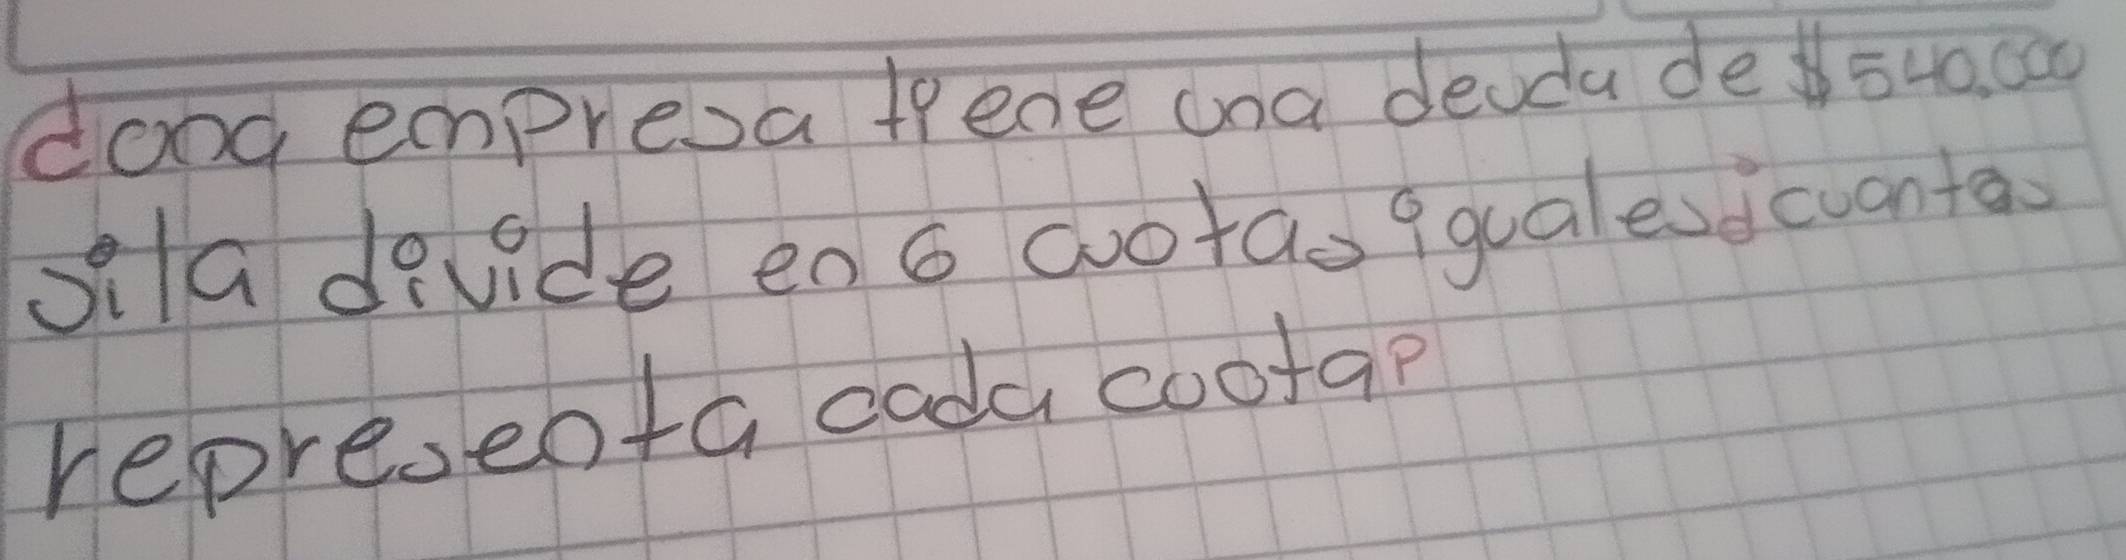 d una empresa tiene una deuda de $540.000
si la divide en 6 cuotas iguales ¿cuantas
representa cada cuota?